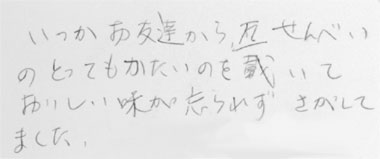 いつかお友達から瓦せんべい
のとってもかたいのを戴いて
おいしい味が忘られず さがして
ました、